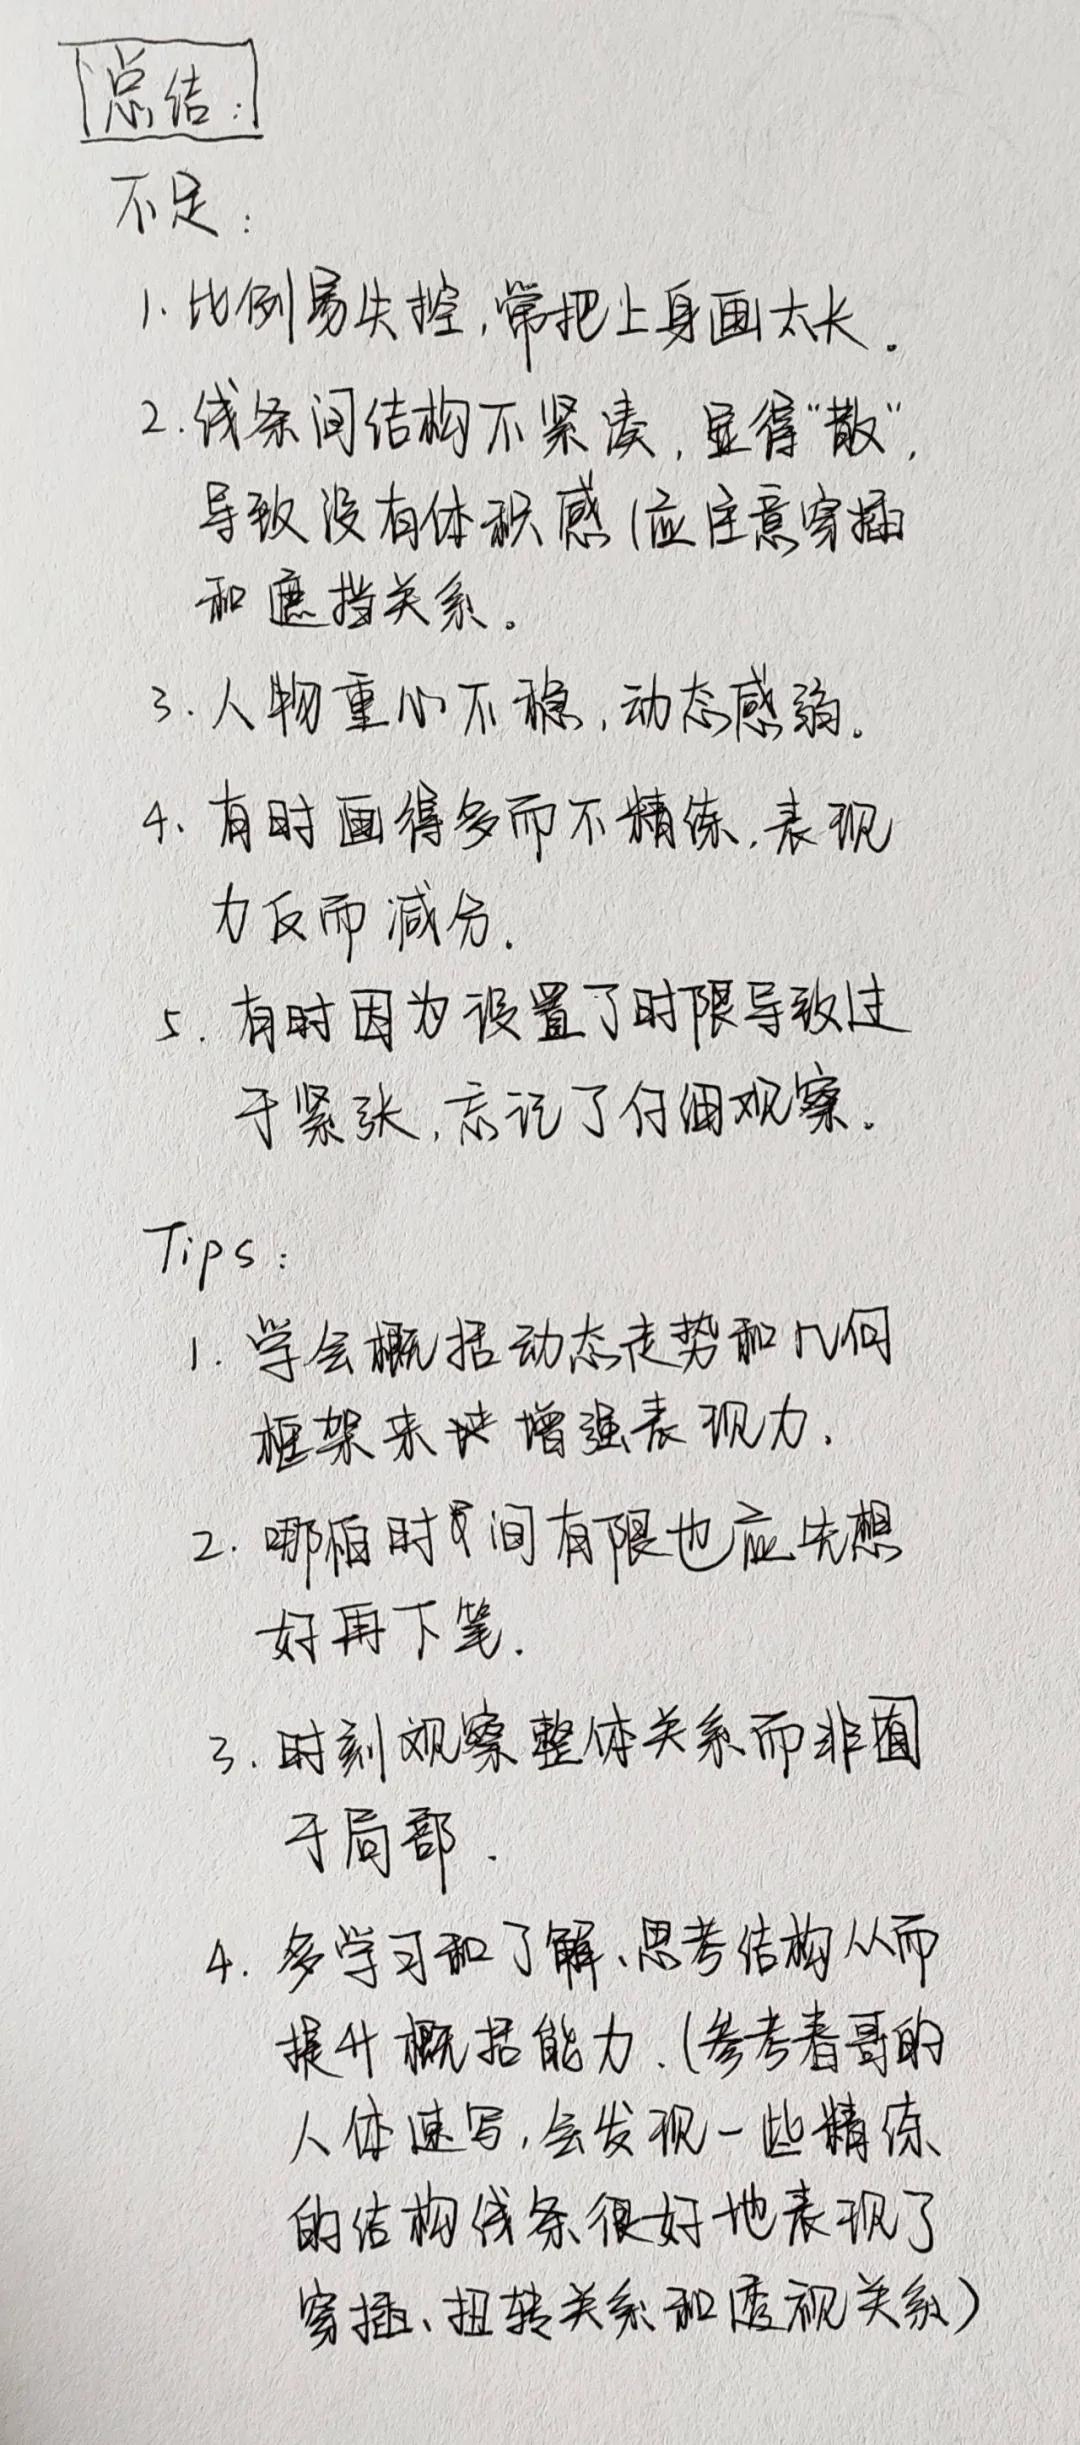 总结:
不足:
1.比例易失控,常把上身画太长。
2.线条间结构不紧凑,显得“散”,
导致没有体积感(应注意穿插
和遮挡关系。
3.人物重心不稳,动态感弱。
4、有时画得多而不精练,表现
力反而减分.
5.有时因为设置了时限导致过
于紧张,忘记了仔细观察.
Tips:
1.学会概括动态走势和几何
框架来增强表现力.
2.哪怕时间有限也应先想
好再下笔.
3.时刻观察整体关系而非囿
于局部.
4.多学习和了解、思考结构从而
提升概括能力.(参考春哥的
人体速写,会发现一些精练
的结构线条很好地表现了
穿插、扭转关系和透视关系)